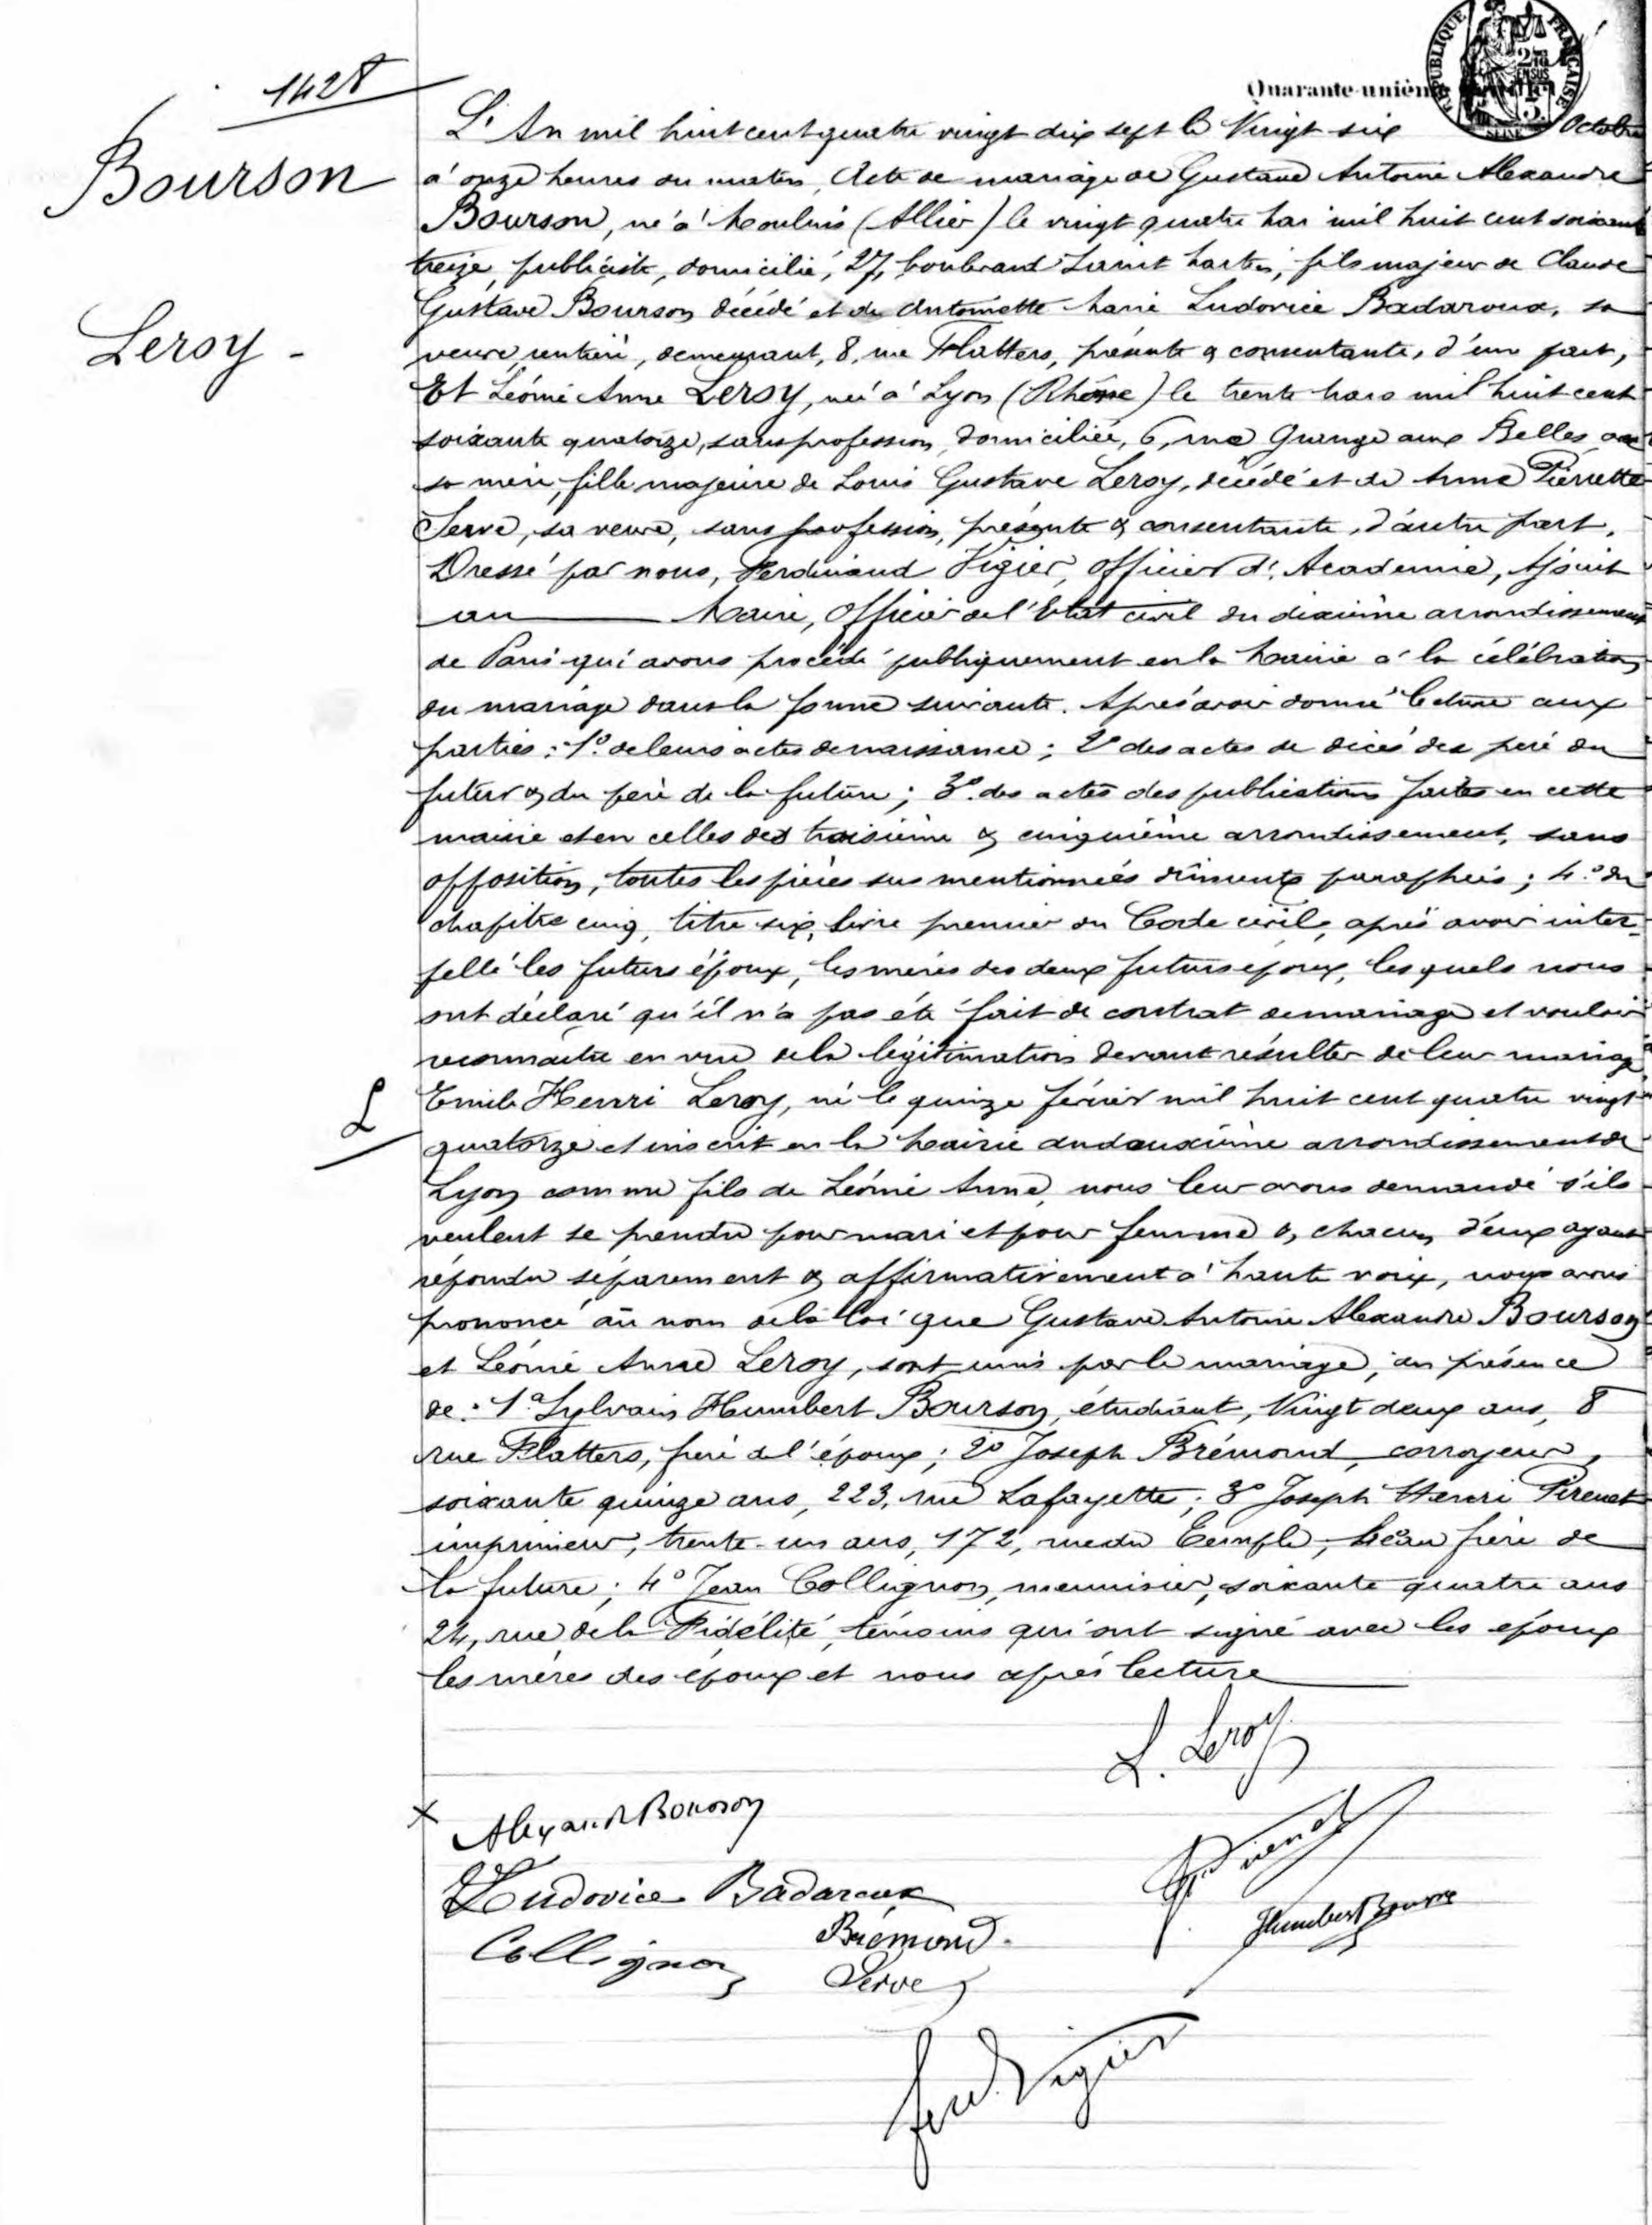 1428
Bourson
Leroy -
Quarante-unième
RÉPUBLIQUE FRANÇAISE
SEINE
L'An mil huit cent quatre vingt dix sept le Vingt six Octobre
à onze heures du matin, Acte de mariage de Gustave Antoine Alexandre
Bourson, né à Moulins (Allier) le vingt quatre Mai mil huit cent soixante
treize, publiciste, domicilié, 27, boulevard Saint Martin, fils majeur de Claude
Gustave Bourson décédé et de Antoinette Marie Ludovice Badaroux, sa
veuve, rentière, demeurant, 8, rue Flatters, présente & consentante, d'une part,
Et Léonie Anne Leroy, née à Lyon (Rhône) le trente Mars mil huit cent
soixante quatorze, sans profession, domiciliée, 6, rue Grange aux Belles avec
sa mère, fille majeure de Louis Gustave Leroy, décédé et de Anne Pierrette
Serve, sa veuve, sans profession, présente & consentante, d'autre part,
Dressé par nous, Ferdinand Vigier, Officier d'Académie, Adjoint
au Maire, Officier de l'Etat civil du dixième arrondissement
de Paris qui avons procédé publiquement en la Mairie à la célébration
du mariage dans la forme suivante. Après avoir donné lecture aux
parties: 1º de leurs actes de naissance; 2º des actes de décès des père du
futur & du père de la future; 3º des actes des publications faites en cette
mairie et en celles des troisième & cinquième arrondissement, sans
opposition, toutes les pièces sus mentionnées dûment paraphées; 4º du
chapitre cinq, titre six, livre premier du Code civil, après avoir inter-
pellé les futurs époux, les mères des deux futurs époux, lesquels nous
ont déclaré qu'il n'a pas été fait de contrat de mariage et vouloir
reconnaître en vue de la légitimation devant résulter de leur mariage
L
Emile Henri Leroy, né le quinze février mil huit cent quatre vingt
quatorze et inscrit en la Mairie du deuxième arrondissement de
Lyon comme fils de Léonie Anne, nous leur avons demandé s'ils
veulent se prendre pour mari et pour femme &, chacun d'eux ayant
répondu séparément & affirmativement à haute voix, nous avons
prononcé au nom de la loi que Gustave Antoine Alexandre Bourson
et Léonie Anne Leroy, sont unis par le mariage, en présence
de: 1º Sylvain Humbert Bourson, étudiant, Vingt deux ans, 8
rue Flatters, frère de l'époux; 2º Joseph Brémond, corroyeur,
soixante quinze ans, 223, rue Lafayette; 3º Joseph Henri
imprimeur, trente-un ans, 172, rue du Temple, beau frère de
la future; 4º Jean Collignon, menuisier, soixante quatre ans
24, rue de la Fidélité, témoins qui ont signé avec les époux
les mères des époux et nous après lecture
L. Leroy
x Alexandre Bourson
Ludovice Badaroux
Brémond
Humbert Bourson
Collignon
Serve
Ferd Vigier